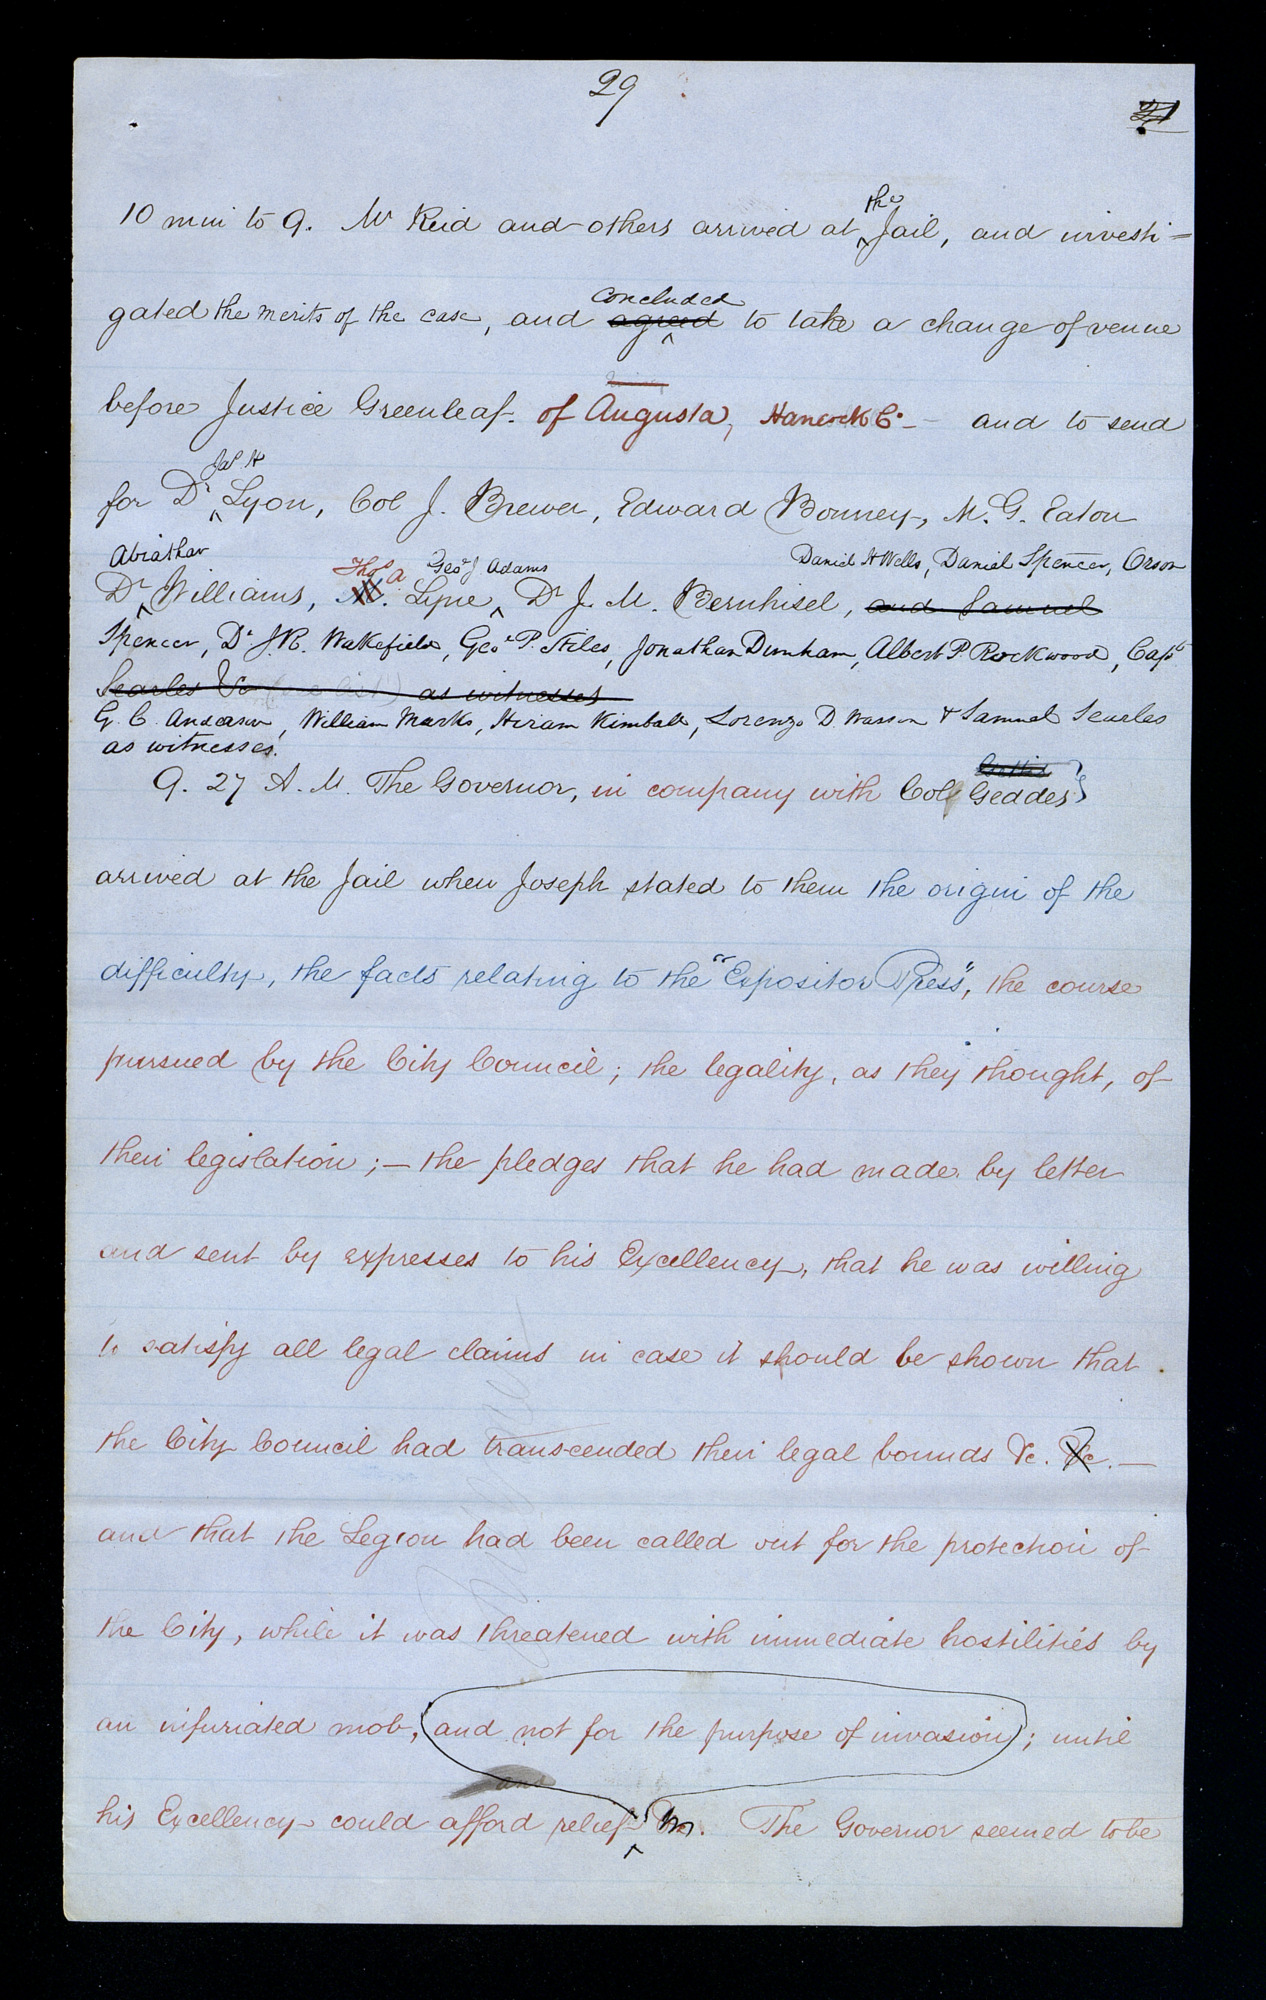 29
10 min to 9. Mr Reid and others arrived at the Jail, and investi=
gated the merits of the case, and agreed concluded to take a change of venue
before Justice Greenleaf. of Augusta, Hancock Co. - and to send
for Dr Jas H Lyon, Col J. Brewer, Edward Bonney, M. G. Eaton
Abiathar Thos A Geo J Adams Daniel H Wells, Daniel Spencer, Orson
Dr Williams, Lyne, Dr J. M. Bernhisel, and Samuel
Spencer, Dr J. R. Wakefield, Geo. P. Stiles, Jonathan Dunham, Albert P. Rockwood, Capt
Searles &c as witnesses
G. C. Anderson, William Marks, Hiram Kimball, Lorenzo D. Wasson & Samuel Searles
as witnesses.
9. 27 A. M. The Governor, in company with Col Geddes
arrived at the Jail when Joseph stated to them the origin of the
difficulty, the facts relating to the "Expositor Press", the course
pursued by the City Council; the legality, as they thought, of
their legislation; — the pledges that he had made by letter
and sent by expresses to his Excellency, that he was willing
to satisfy all legal claims in case it should be shown that
the City Council had transcended their legal bounds &c. &c. —
and that the Legion had been called out for the protection of
the City, while it was threatened with immediate hostilities by
an infuriated mob, and not for the purpose of invasion; until
and
his Excellency could afford relief. The Governor seemed to be